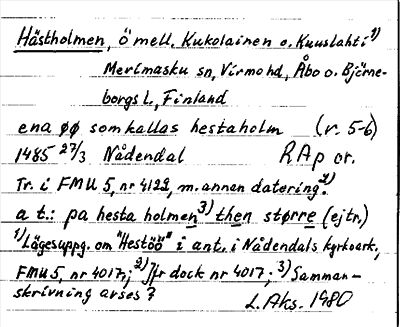 Hästholmen, ö mell. Kukolainen o. Kuuslahti 1)
Merimasku sn, Virmo hd, Åbo o. Björne-
borgs l., Finland
ena øø som kallas hestaholm (r. 5-6)
1485 27/3 Nådendal RAp or.
Tr. i FMU 5, nr 4122, m. annan datering. 2)
a t.: pa hesta holmen 3) then større (ej tr.)
1) Lägesuppg. om "Hestöö" i ant. i Nådendals kyrkoark,
FMU 5, nr 4017; 2) Jfr dock nr 4017; 3) Samman-
skrivning avses?
L. Aks. 1980